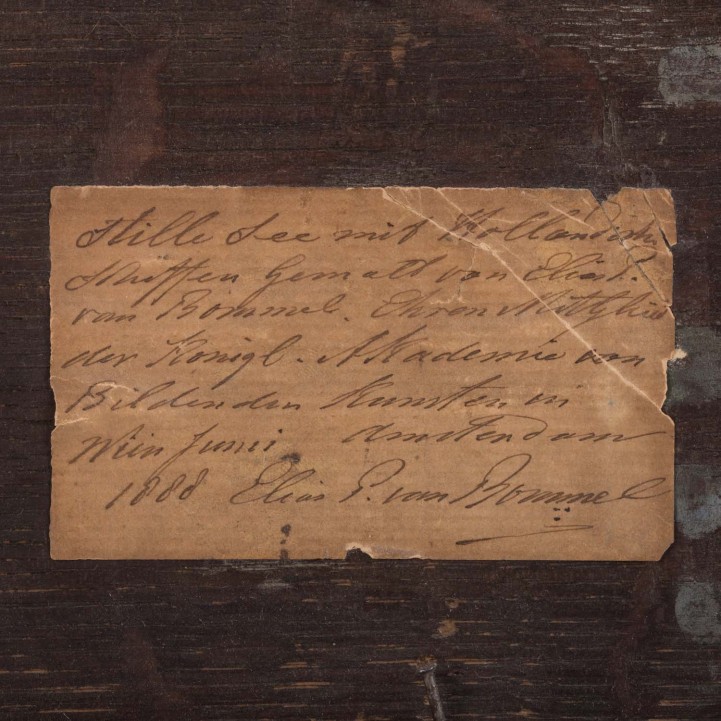 Stille See mit Holländische
Schiffen Gemalt von Elias P.
van Bommel. Ehren Mittglied
der Konigl. Akademie von
Bildenden Kunsten in
Wien Junii Amsterdam
1888 Elias P. van Bommel